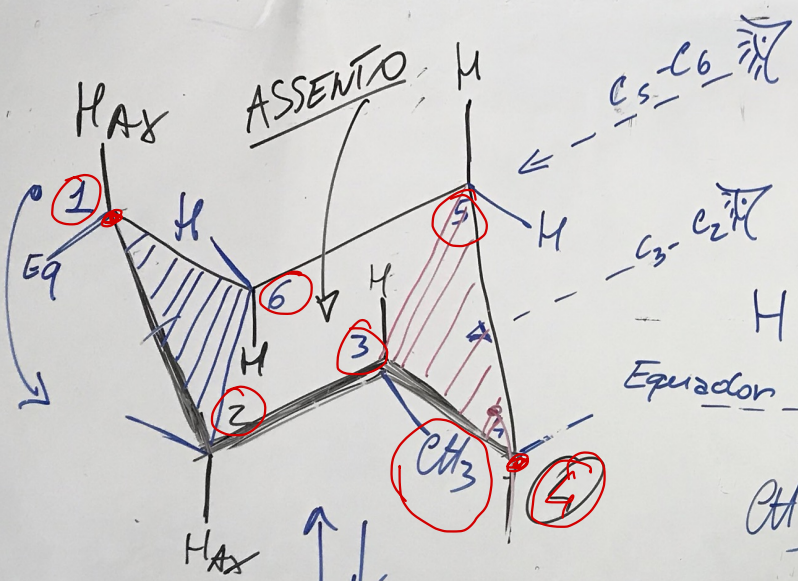 HAX
ASSENTO
H
C5-C6
1
H
5
H
Eq
C3-C2
6
H
3
H
H
Equador
2
CH3
4
HAX
CH